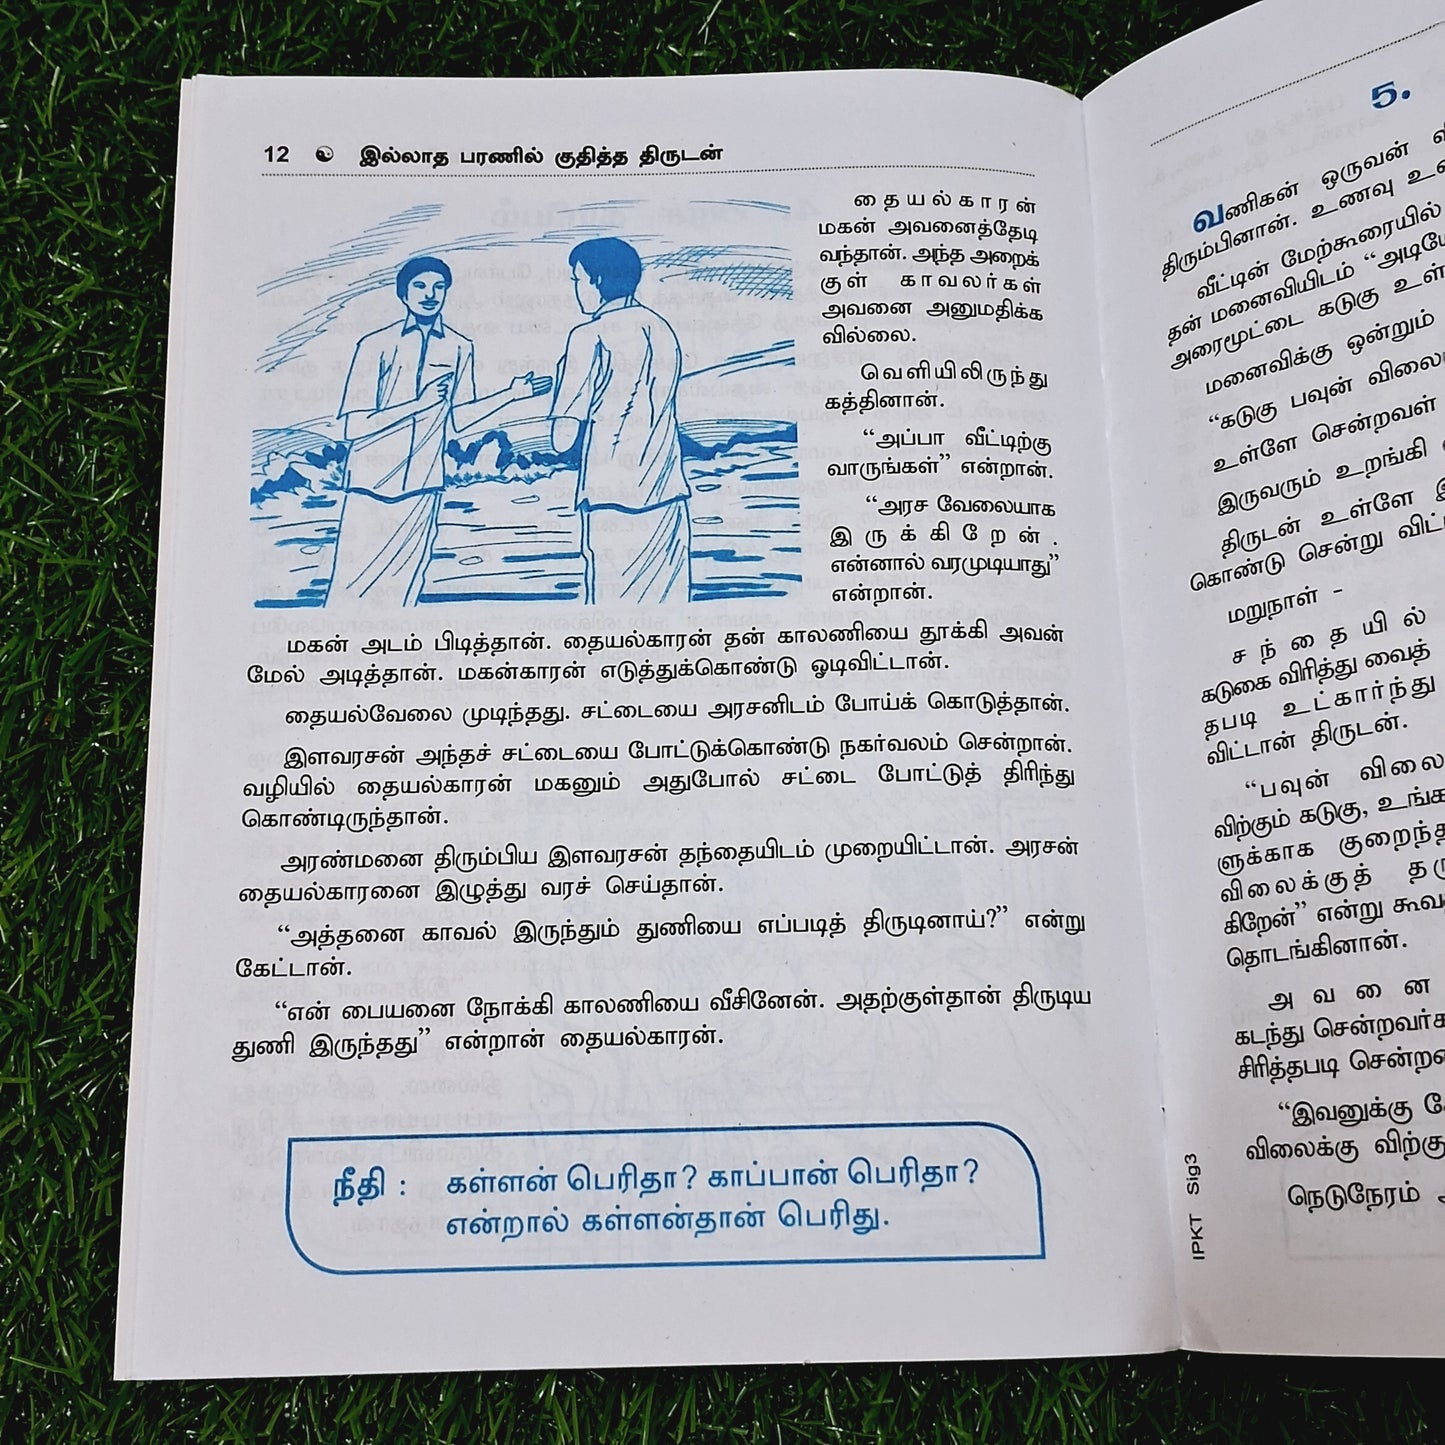 12 ☯ இல்லாத பரணில் குதித்த திருடன்
தையல்காரன்
மகன் அவனைத்தேடி
வந்தான். அந்த அறைக்
குள் காவலர்கள்
அவனை அனுமதிக்க
வில்லை.
வெளியிலிருந்து
கத்தினான்.
“அப்பா வீட்டிற்கு
வாருங்கள்” என்றான்.
“அரச வேலையாக
இருக்கிறேன்.
என்னால் வரமுடியாது”
என்றான்.
மகன் அடம் பிடித்தான். தையல்காரன் தன் காலணியை தூக்கி அவன்
மேல் அடித்தான். மகன்காரன் எடுத்துக்கொண்டு ஓடிவிட்டான்.
தையல்வேலை முடிந்தது. சட்டையை அரசனிடம் போய்க் கொடுத்தான்.
இளவரசன் அந்தச் சட்டையை போட்டுக்கொண்டு நகர்வலம் சென்றான்.
வழியில் தையல்காரன் மகனும் அதுபோல் சட்டை போட்டுத் திரிந்து
கொண்டிருந்தான்.
அரண்மனை திரும்பிய இளவரசன் தந்தையிடம் முறையிட்டான். அரசன்
தையல்காரனை இழுத்து வரச் செய்தான்.
“அத்தனை காவல் இருந்தும் துணியை எப்படித் திருடினாய்?” என்று
கேட்டான்.
“என் பையனை நோக்கி காலணியை வீசினேன். அதற்குள்தான் திருடிய
துணி இருந்தது” என்றான் தையல்காரன்.
நீதி : கள்ளன் பெரிதா? காப்பான் பெரிதா?
என்றால் கள்ளன்தான் பெரிது.
5.
வணிகன் ஒருவன்
திரும்பினான். உணவு
வீட்டின் மேற்கூரையில்
தன் மனைவியிடம் “அடியே
அரைமூட்டை கடுகு
மனைவிக்கு ஒன்றும்
“கடுகு பவுன்
உள்ளே சென்றவள்
இருவரும் உறங்கி
திருடன் உள்ளே
கொண்டு சென்று
மறுநாள் -
சந்தையில்
கடுகை விரித்து வைத்
தபடி உட்கார்ந்து
விட்டான் திருடன்.
“பவுன் விலை
விற்கும் கடுகு,
ளுக்காக
விலைக்குத்
கிறேன்” என்று
தொடங்கினான்.
அவனை
கடந்து
சிரித்தபடி
“இவனுக்கு
விலைக்கு
நெடுநேரம்
IPKT Sig3